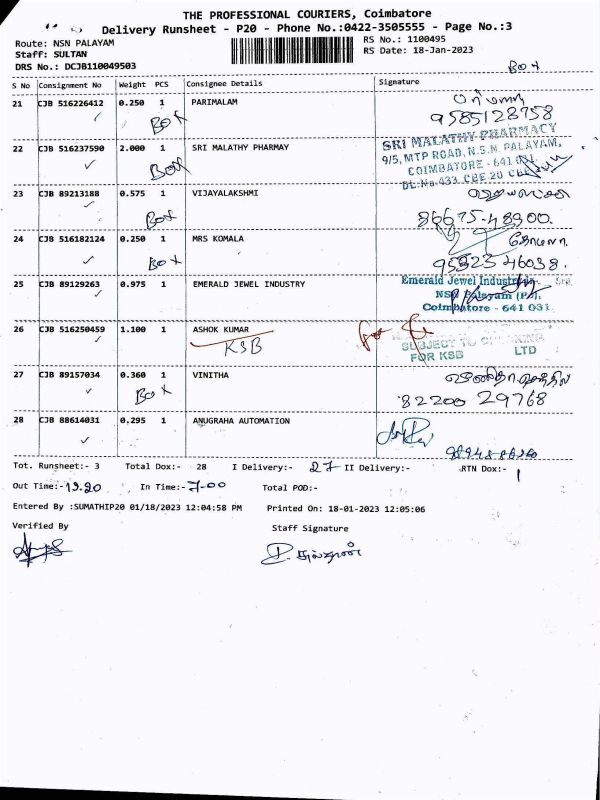 THE PROFESSIONAL COURIERS, Coimbatore
Delivery Runsheet - P20 - Phone No.:0422-3505555 - Page No.:3
Route: NSN PALAYAM
RS No.: 1100495
Staff: SULTAN
RS Date: 18-Jan-2023
DRS No.: DCJB110049503
Box
S No Consignment No Weight PCS Consignee Details Signature
21 CJB 516226412 0.250 1 PARIMALAM
Box
9585128758
22 CJB 516237590 2.000 1 SRI MALATHY PHARMAY
Box
SRI MALATHY PHARMACY
9/5, MTP ROAD, N.S.N. PALAYAM,
COIMBATORE - 641 031.
DL.No.433 CBE 20 CBE
23 CJB 89213188 0.575 1 VIJAYALAKSHMI
Box
86675-48900.
24 CJB 516182124 0.250 1 MRS KOMALA
கோமளா.
Box
95323 46038.
25 CJB 89129263 0.975 1 EMERALD JEWEL INDUSTRY
Emerald Jewel Industry
NSN Palayam (Po),
Coimbatore - 641 031
26 CJB 516250459 1.100 1 ASHOK KUMAR
KSB
SUBJECT TO CHECKING
FOR KSB LTD
27 CJB 89157034 0.360 1 VINITHA
Box
82200 29768
28 CJB 88614031 0.295 1 ANUGRAHA AUTOMATION
Tot. Runsheet:- 3 Total Dox:- 28 I Delivery:- 27 II Delivery:- RTN Dox:- 1
Out Time:- 13.20 In Time:- 7-00 Total POD:-
Entered By :SUMATHIP20 01/18/2023 12:04:58 PM Printed On: 18-01-2023 12:05:06
Verified By Staff Signature